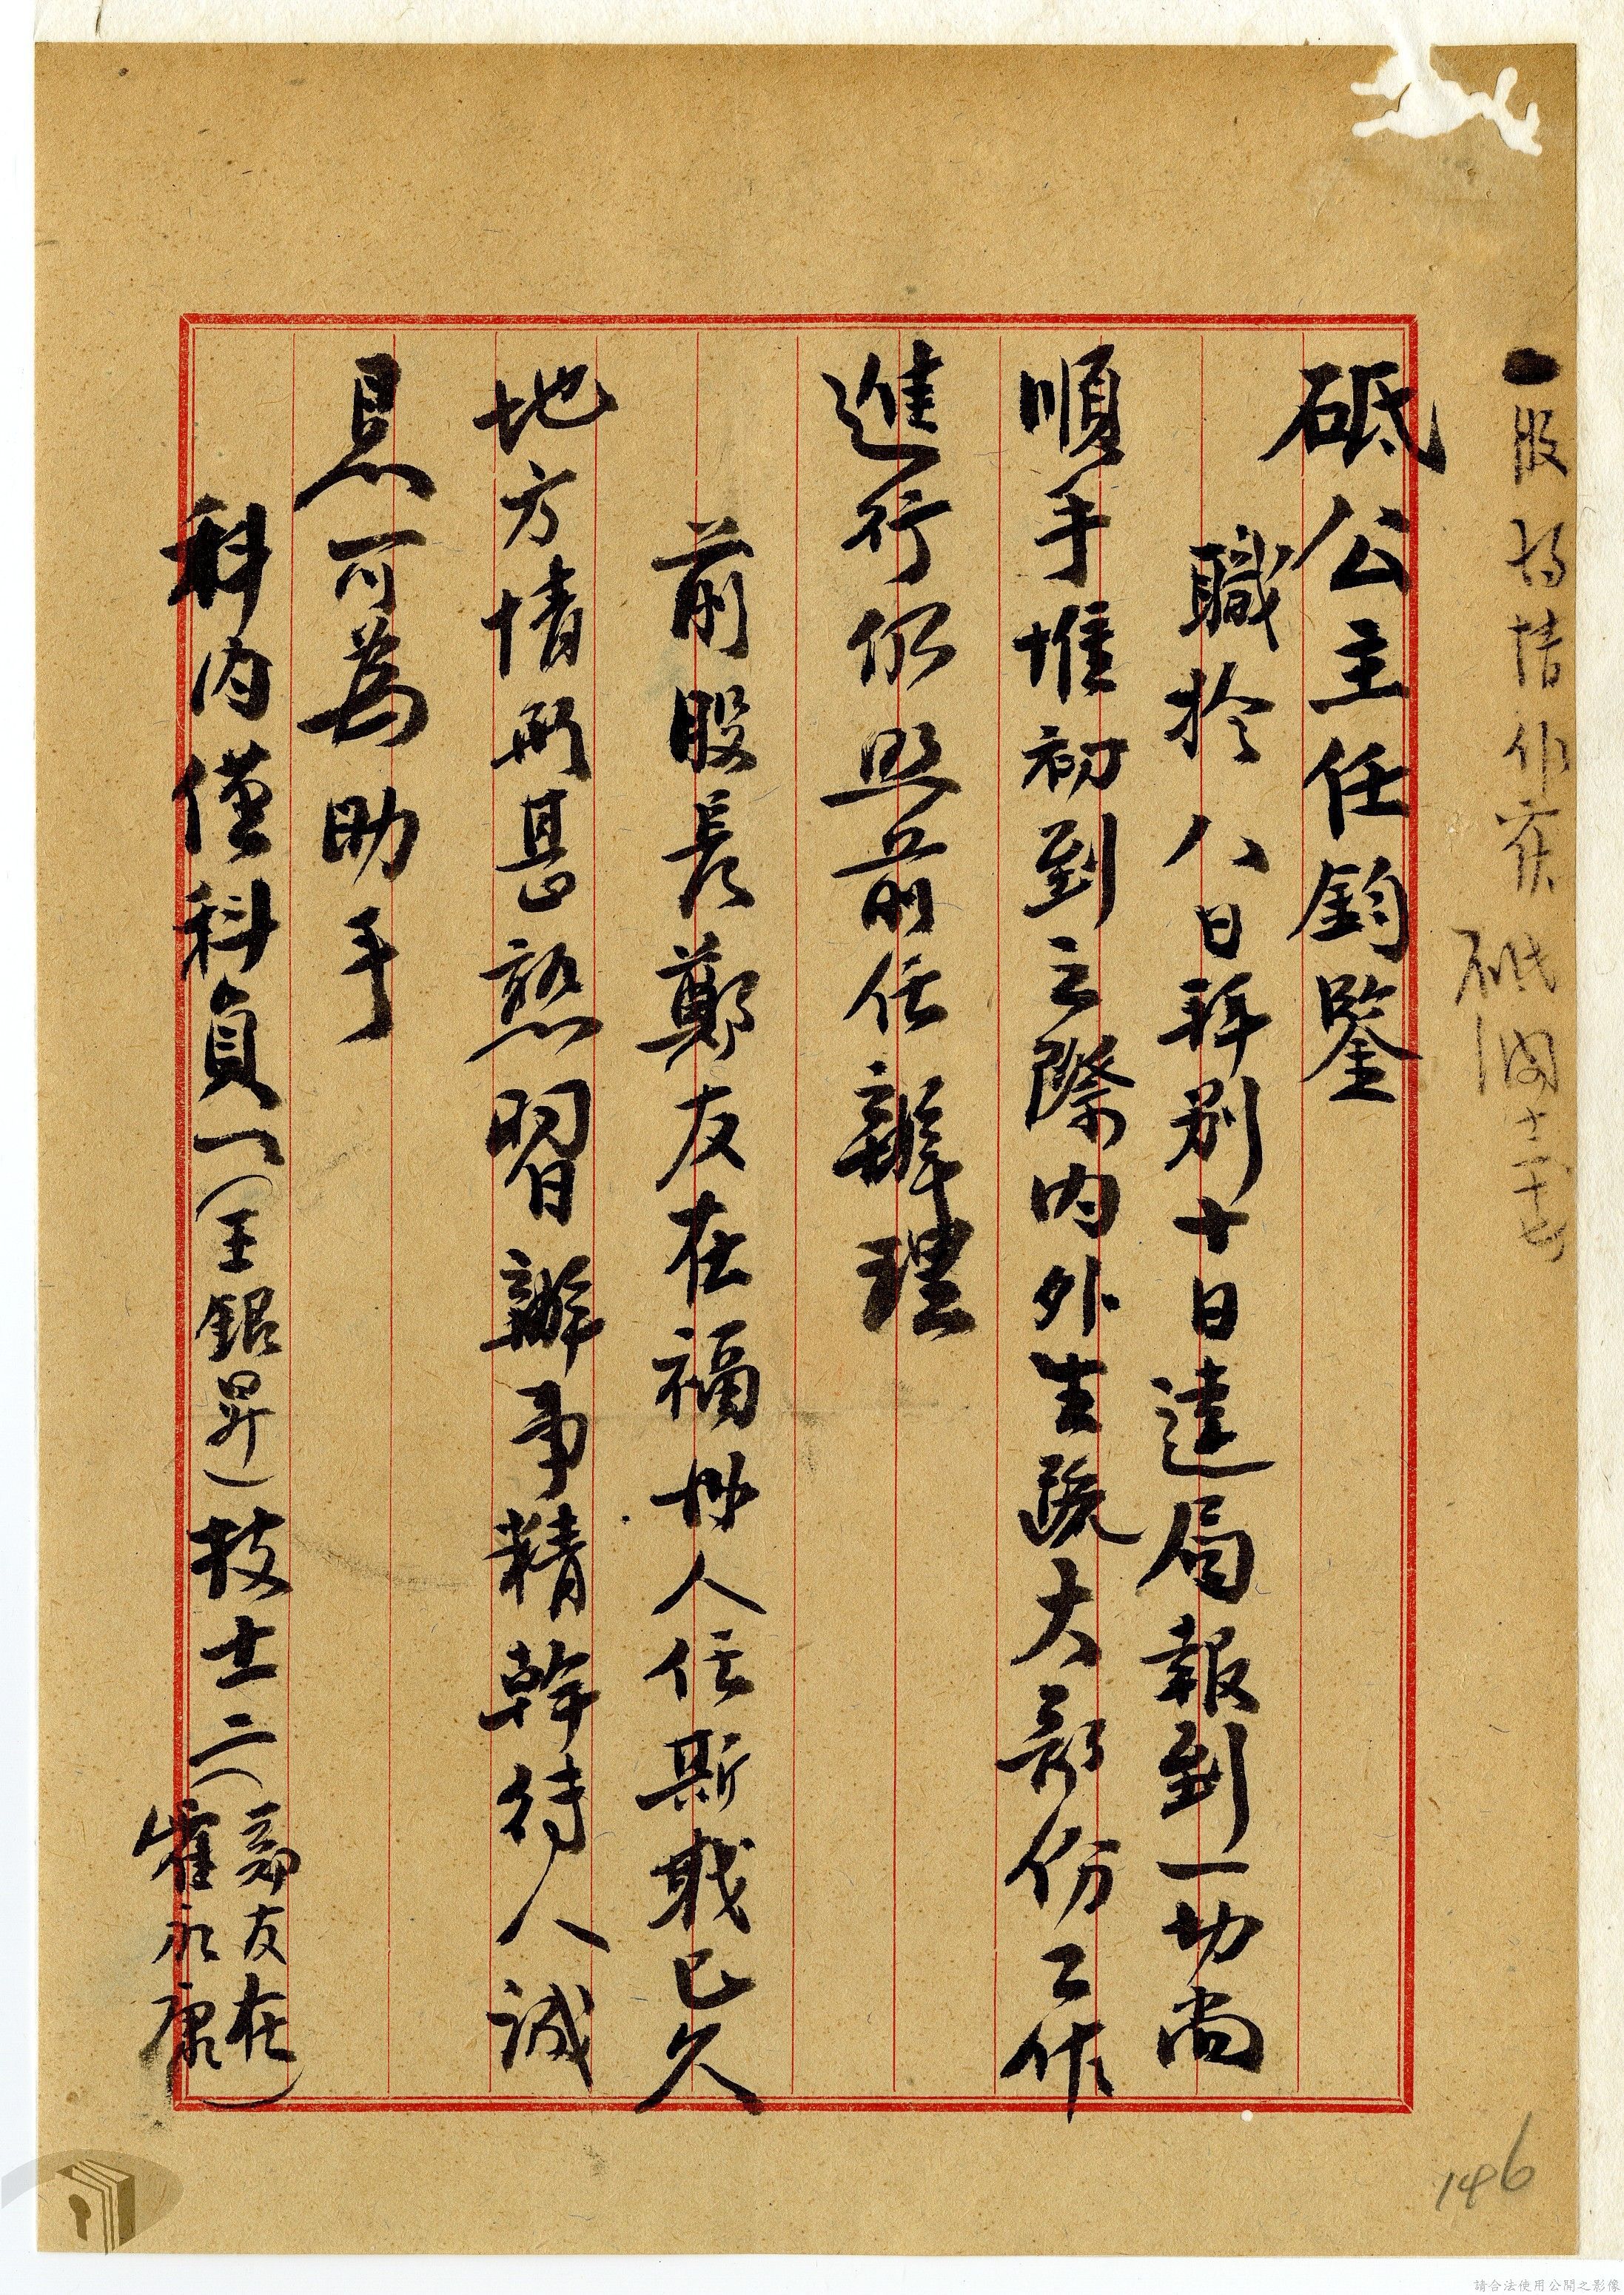 砥公主任鈞鑒
職於八日拜別十日達局報到一切尚
順手惟初到之際內外生疏大部份工作
進行仍照前任辦理
前股長鄭友在福州人任斯職已久
地方情形甚熟習辦事精幹待人誠
恳可為助手
科內僅科員一(王銀昇)技士二(鄭友在
崔永康)
146
請合法使用公開之影像